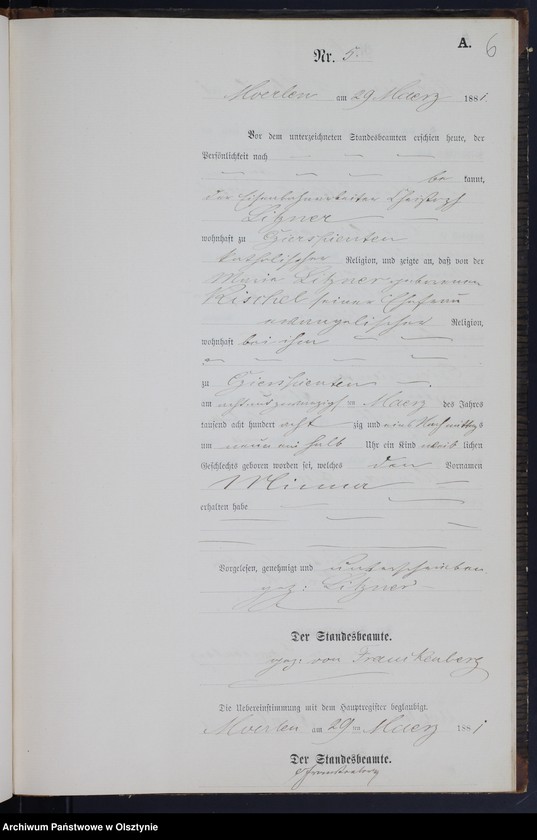 A. 6
Nr. 5.
Moerlen am 29 Maerz 1881.
Vor dem unterzeichneten Standesbeamten erschien heute, der
Persönlichkeit nach
be kannt,
der Eisenbahnarbeiter Christoph
Litzner
wohnhaft zu Gierspienten
katholischer Religion, und zeigte an, daß von der
Maria Litzner geborenen
Kischel seiner Ehefrau
evangelischer Religion,
wohnhaft bei ihm
zu Gierspienten
am achtundzwanzigsten Maerz des Jahres
tausend acht hundert acht zig und eins Nachmittags
um neun ein halb Uhr ein Kind weib lichen
Geschlechts geboren worden sei, welches den Vornamen
Minna
erhalten habe
Vorgelesen, genehmigt und unterschrieben
gez: Litzner
Der Standesbeamte.
gez: von Frankenberg
Die Uebereinstimmung mit dem Hauptregister beglaubigt.
Moerlen am 29 ten Maerz 1881
Der Standesbeamte.
vFrankenberg
Archiwum Państwowe w Olsztynie